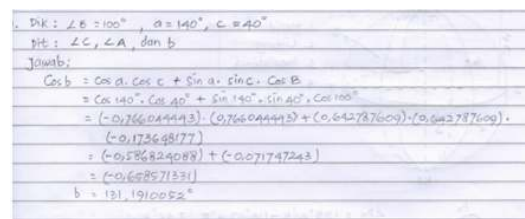 . Dik : ∠B = 100° , a = 140°, c = 40°
Dit : ∠C, ∠A, dan b
Jawab;
Cos b = Cos a. Cos c + Sin a. Sin c. Cos B
= Cos 140°. Cos 40° + Sin 140°. Sin 40°. Cos 100°
= (-0,766044443). (0,766044443) + (0,642787609).(0,642787609).
(-0,173648177)
= (-0,586824088) + (-0,071747243)
= (-0,658571331)
b = 131,1910052°